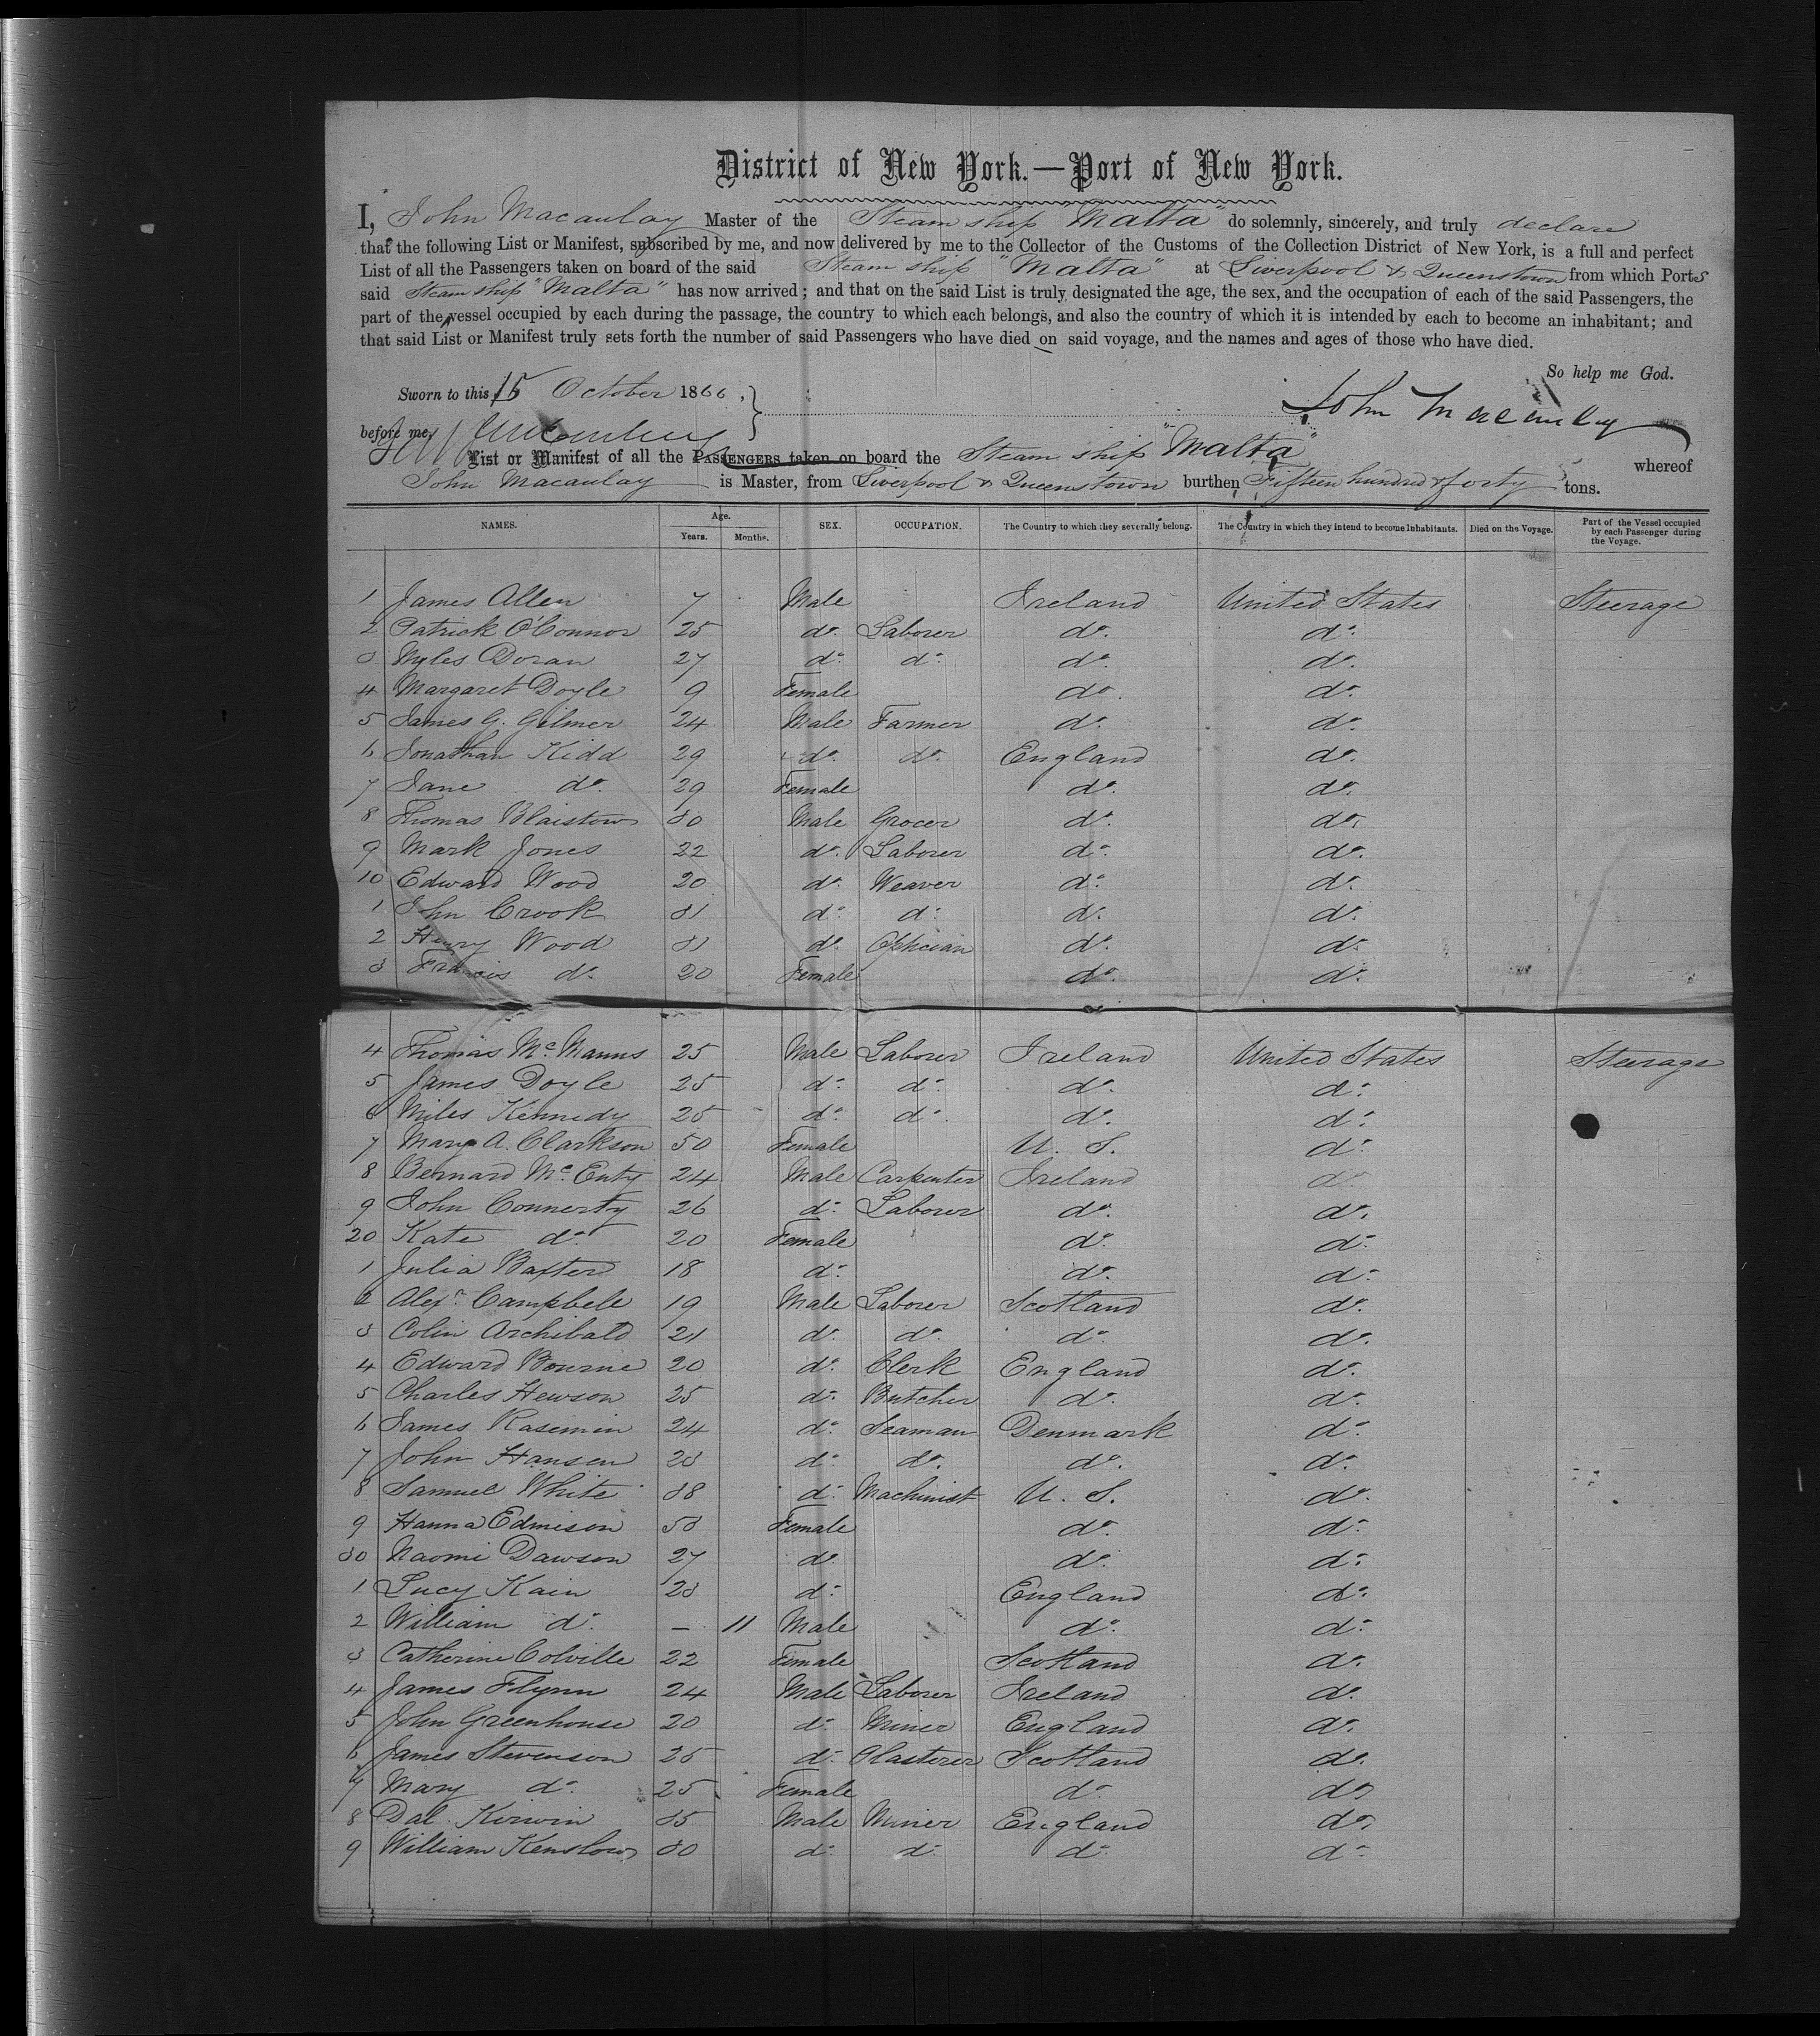 District of New York.—Port of New York.
I, John Macaulay Master of the Steam ship "Malta" do solemnly, sincerely, and truly declare
that the following List or Manifest, subscribed by me, and now delivered by me to the Collector of the Customs of the Collection District of New York, is a full and perfect
List of all the Passengers taken on board of the said Steam ship "Malta" at Liverpool & Queenstown from which Ports
said Steam ship "Malta" has now arrived; and that on the said List is truly designated the age, the sex, and the occupation of each of the said Passengers, the
part of the vessel occupied by each during the passage, the country to which each belongs, and also the country of which it is intended by each to become an inhabitant; and
that said List or Manifest truly sets forth the number of said Passengers who have died on said voyage, and the names and ages of those who have died.
So help me God.
Sworn to this 15 October 1866,
John Macaulay
before me,
List or Manifest of all the PASSENGERS taken on board the Steam ship "Malta" whereof
John Macaulay is Master, from Liverpool & Queenstown burthen Fifteen hundred & forty tons.
NAMES. Age. Years. Months. SEX. OCCUPATION. The Country to which they severally belong. The Country in which they intend to become Inhabitants. Died on the Voyage. Part of the Vessel occupied by each Passenger during the Voyage.
1 James Allen 7 Male Ireland United States Steerage
2 Patrick O'Connor 25 do. Laborer do. do.
3 Myles Doran 27 do. do. do. do.
4 Margaret Doyle 9 Female do. do.
5 James G. Gilmer 24 Male Farmer do. do.
6 Jonathan Kidd 29 do. do. England do.
7 Jane do. 29 Female do. do.
8 Thomas Blaistow 30 Male Grocer do. do.
9 Mark Jones 22 do. Laborer do. do.
10 Edward Wood 20 do. Weaver do. do.
1 John Crook 31 do. do. do. do.
2 Henry Wood 31 do. do. do.
3 Francis do. 20 Female do. do.
4 Thomas McManus 25 Male Laborer Ireland United States Steerage
5 James Doyle 25 do. do. do. do.
6 Miles Kennedy 25 do. do. do. do.
7 Mary A. Clarkson 50 Female U. S. do.
8 Bernard McEnty 24 Male Carpenter Ireland do.
9 John Connerty 26 do. Laborer do. do.
20 Kate do. 20 Female do. do.
1 Julia Baxter 18 do. do. do.
2 Alexr. Campbell 19 Male Laborer Scotland do.
3 Colin Archibald 21 do. do. do. do.
4 Edward Bourne 20 do. Clerk England do.
5 Charles Hewson 25 do. Butcher do. do.
6 James Rasemin 24 do. Seaman Denmark do.
7 John Hansen 23 do. do. do. do.
8 Samuel White 38 do. Machinist U. S. do.
9 Hanna Edmison 53 Female do. do.
30 Naomi Dawson 27 do. do. do.
1 Lucy Kain 23 do. England do.
2 William do. — 11 Male do. do.
3 Catherine Colville 22 Female Scotland do.
4 James Flynn 24 Male Laborer Ireland do.
5 John Greenhouse 20 do. Miner England do.
6 James Stevenson 25 do. Plasterer Scotland do.
7 Mary do. 25 Female do. do.
8 Dal. Kerwin 35 Male Miner England do.
9 William Kenslow 30 do. do. do. do.